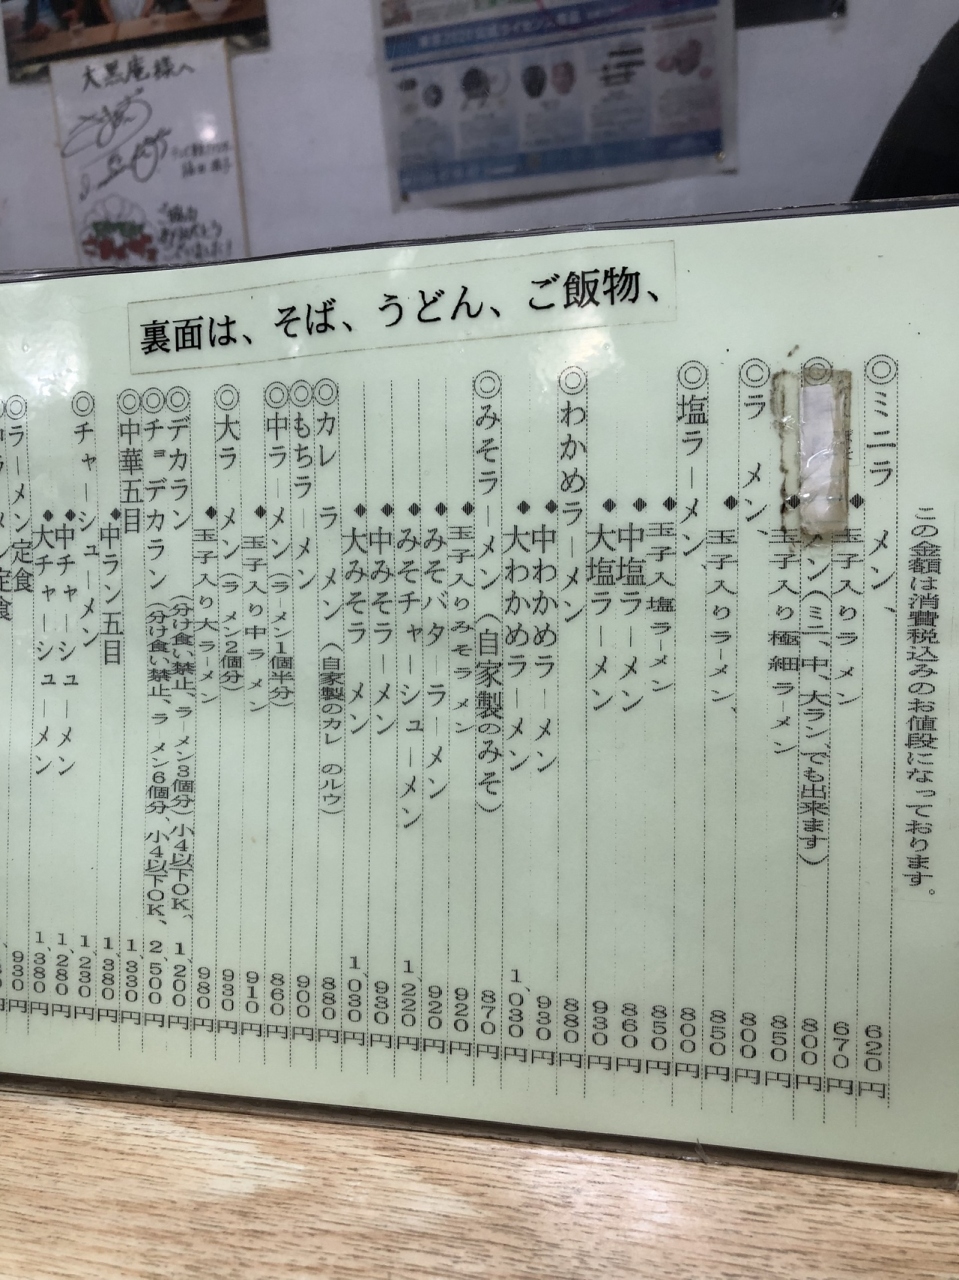 大黒庵様へ
裏面は、そば、うどん、ご飯物、
この金額は消費税込みのお値段になっております。
◎ミニラーメン、 620円
◆玉子入りラーメン 670円
◎ メン(ミニ、中、大ラン、でも出来ます) 800円
◆玉子入り極細ラーメン 850円
◎ラーメン、 800円
◆玉子入りラーメン、 850円
◎塩ラーメン、 800円
◆玉子入り塩ラーメン 850円
◆中塩ラーメン 860円
◆大塩ラーメン 930円
◎わかめラーメン 880円
◆中わかめラーメン 930円
◆大わかめラーメン 1,030円
◎みそラーメン(自家製のみそ) 870円
◆玉子入りみそラーメン 920円
◆みそバターラーメン 920円
◆みそチャーシューメン 1,220円
◆中みそラーメン 930円
◆大みそラーメン 1,030円
◎カレーラーメン(自家製のカレーのルウ) 880円
◎もちラーメン 900円
◎中ラーメン(ラーメン1個半分) 860円
◆玉子入り中ラーメン 910円
◎大ラーメン(ラーメン2個分) 930円
◆玉子入り大ラーメン 980円
◎デカラン(分け食い禁止、ラーメン3個分)小4以下OK、 1,200円
◎チョーデカラン(分け食い禁止、ラーメン6個分、小4以下OK、 2,500円
◎中華五目 1,330円
◆中ラン五目 1,380円
◎チャーシューメン 1,230円
◆中チャーシューメン 1,280円
◆大チャーシューメン 1,380円
◎ラーメン定食 930円